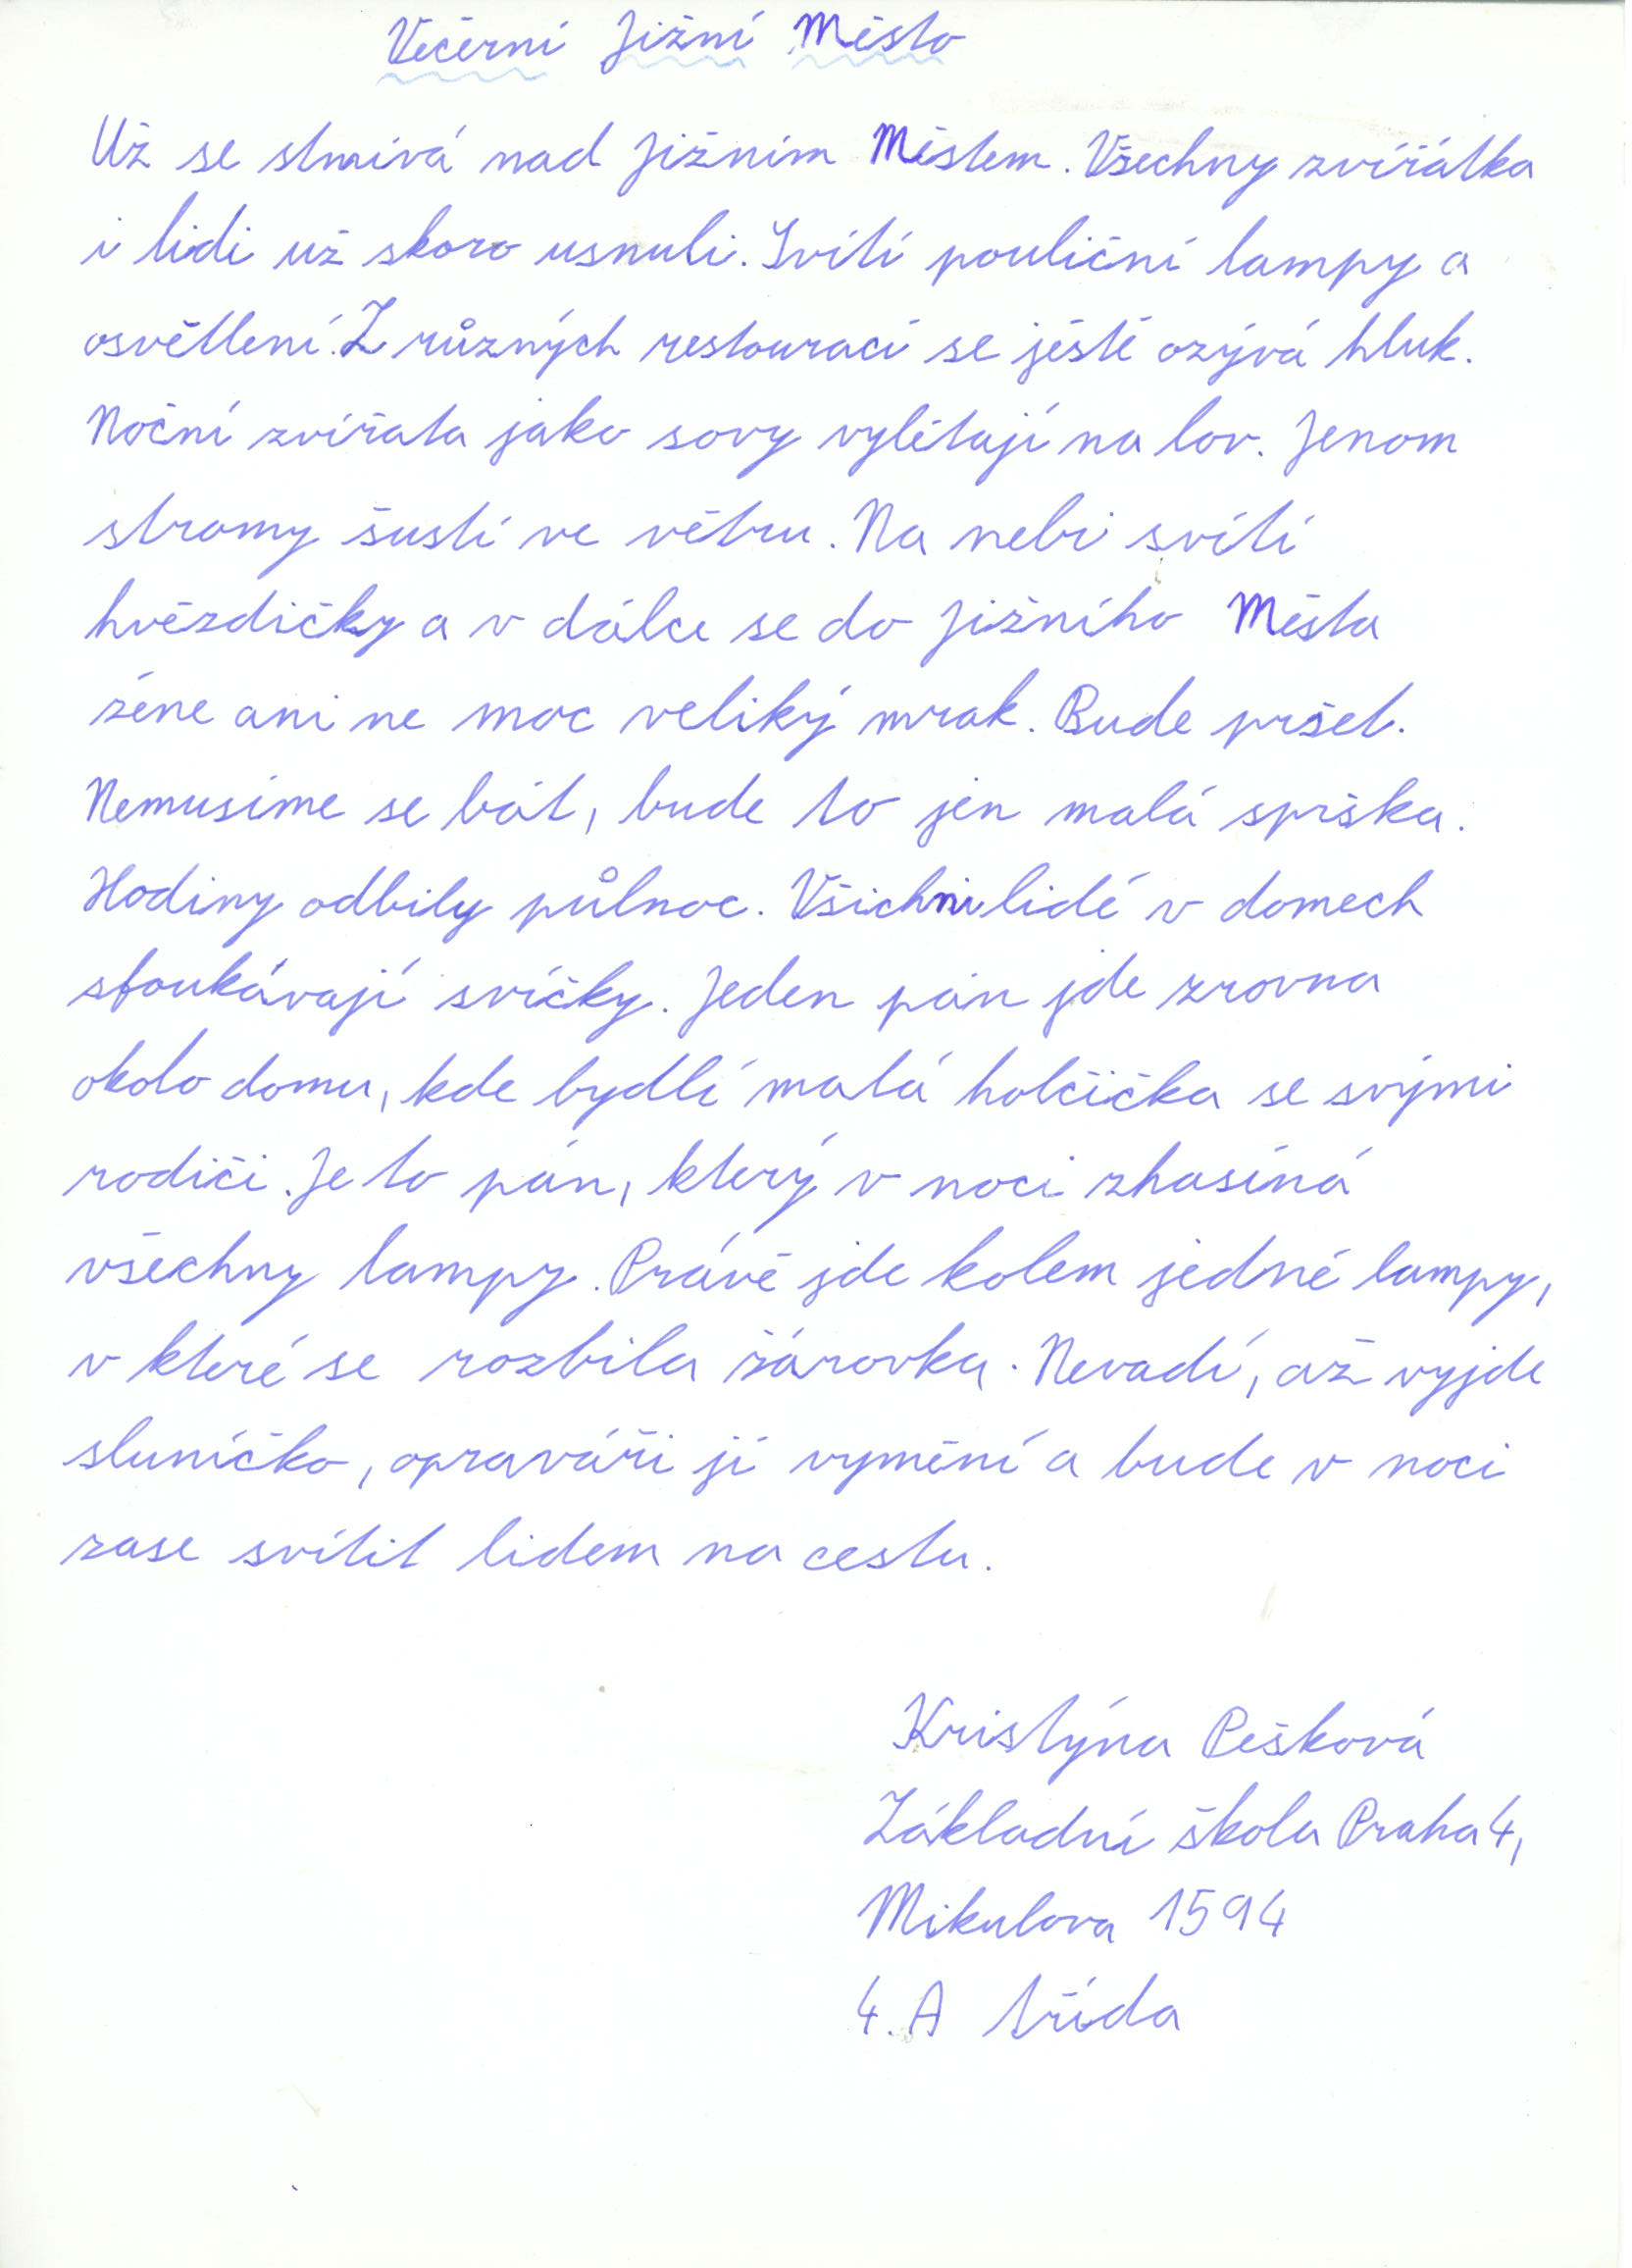 Večerní Jižní Město
Už se stmívá nad Jižním Městem. Všechny zvířátka
i lidi už skoro usnuli. Svítí pouliční lampy a
osvětlení. Z různých restaurací se ještě ozývá hluk.
Noční zvířata jako sovy vylétají na lov. Jenom
stromy šustí ve větru. Na nebi svítí
hvězdičky a v dálce se do Jižního Města
žene ani ne moc veliký mrak. Bude pršet.
Nemusíme se bát, bude to jen malá sprška.
Hodiny odbily půlnoc. Všichni lidé v domech
sfoukávají svíčky. Jeden pán jde zrovna
okolo domu, kde bydlí malá holčička se svými
rodiči. Je to pán, který v noci zhasíná
všechny lampy. Právě jde kolem jedné lampy,
v které se rozbila žárovka. Nevadí, až vyjde
sluníčko, opraváři jí vymění a bude v noci
zase svítit lidem na cestu.
Kristýna Pešková
Základní škola Praha 4,
Mikulova 1594
4. A třída